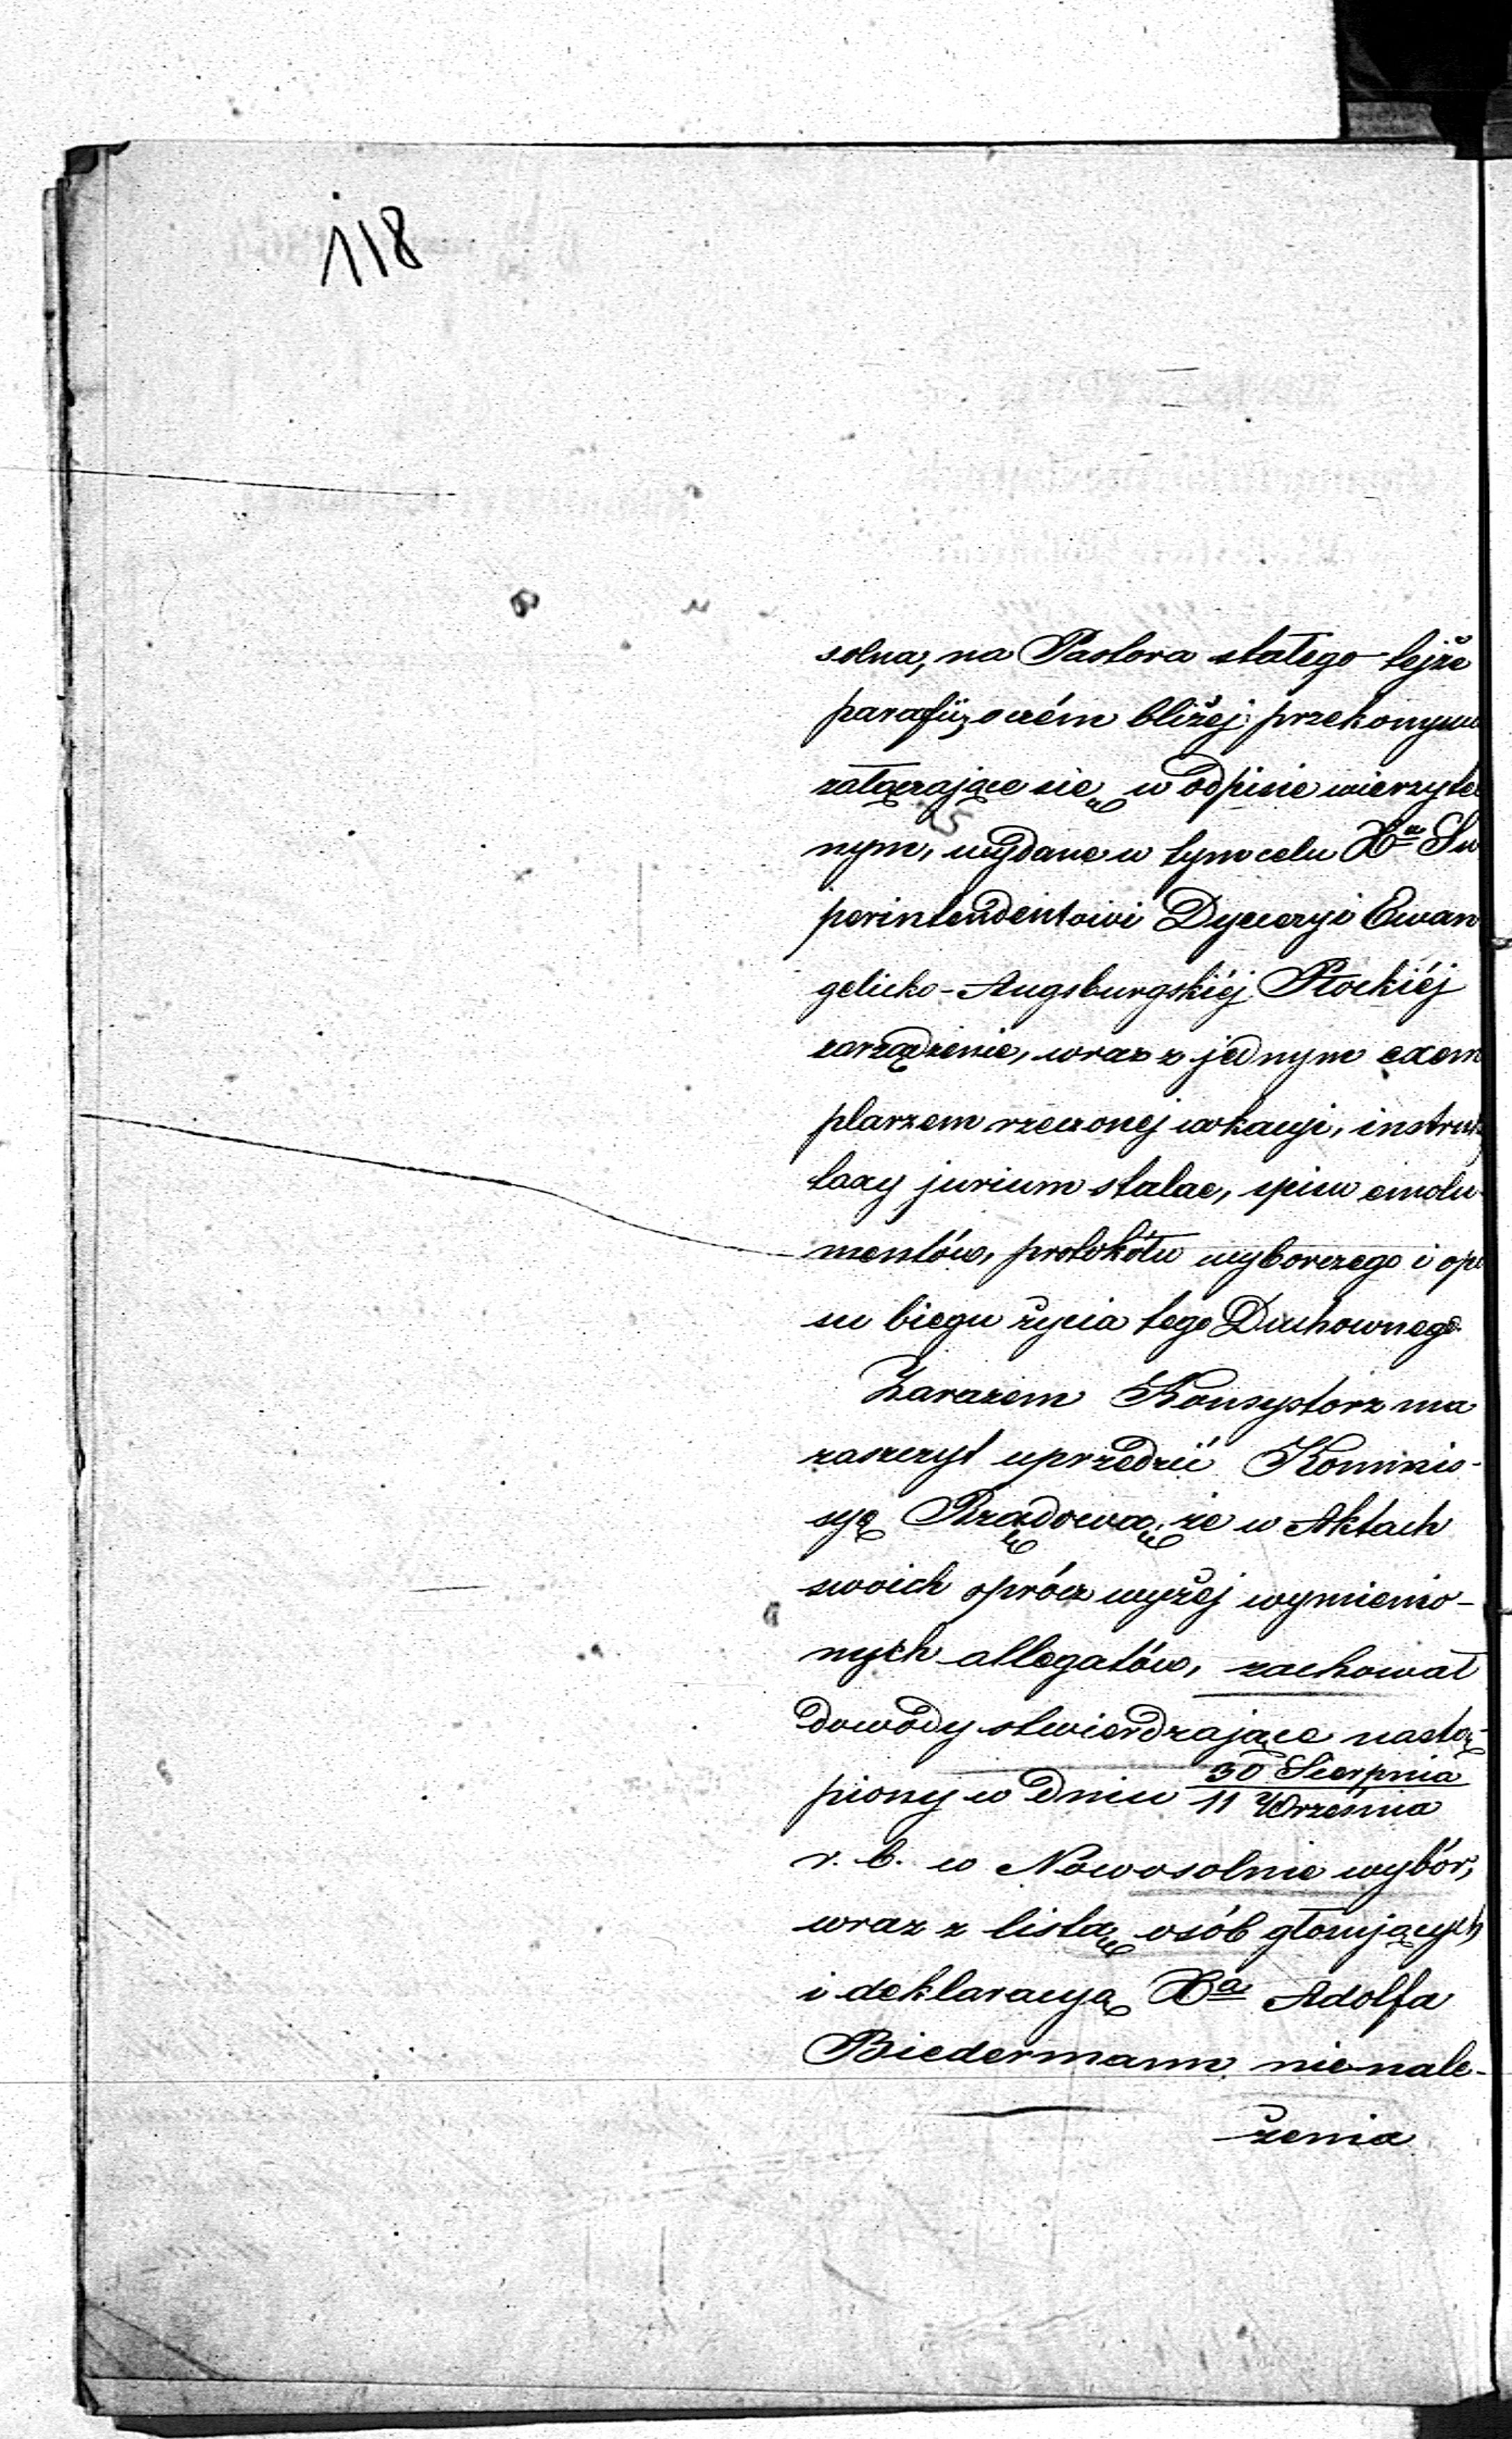 118
solna, na Pastora stałego tejże
parafii, o czém bliżej przekonywa
załączające się w odpisie wierzytel
nym, wydane w tym celu Xu Su
perintendentowi Dyecezyi Ewan
gelicko-Augsburgskiéj Płockiéj
zarządzenie, wraz z jednym exem
plarzem rzeczonej wokacyi,
taxy jurium stolae, spisu emolu-
mentów, protokółu wyborczego i opi
su biegu życia tego Duchownego.
Zarazem Konsystorz ma
zaszczyt uprzedzić Kommis-
syę Rządową, że w Aktach
swoich oprócz wyżej wymienio-
nych allegatów, zachował
dowody stwierdzające nastą-
piony w dniu 30 Sierpnia
11 Września
r. b. w Nowosolnie wybór,
wraz z listą osób głosujących
i deklaracyą Xa Adolfa
Biedermann nienale-
żenia